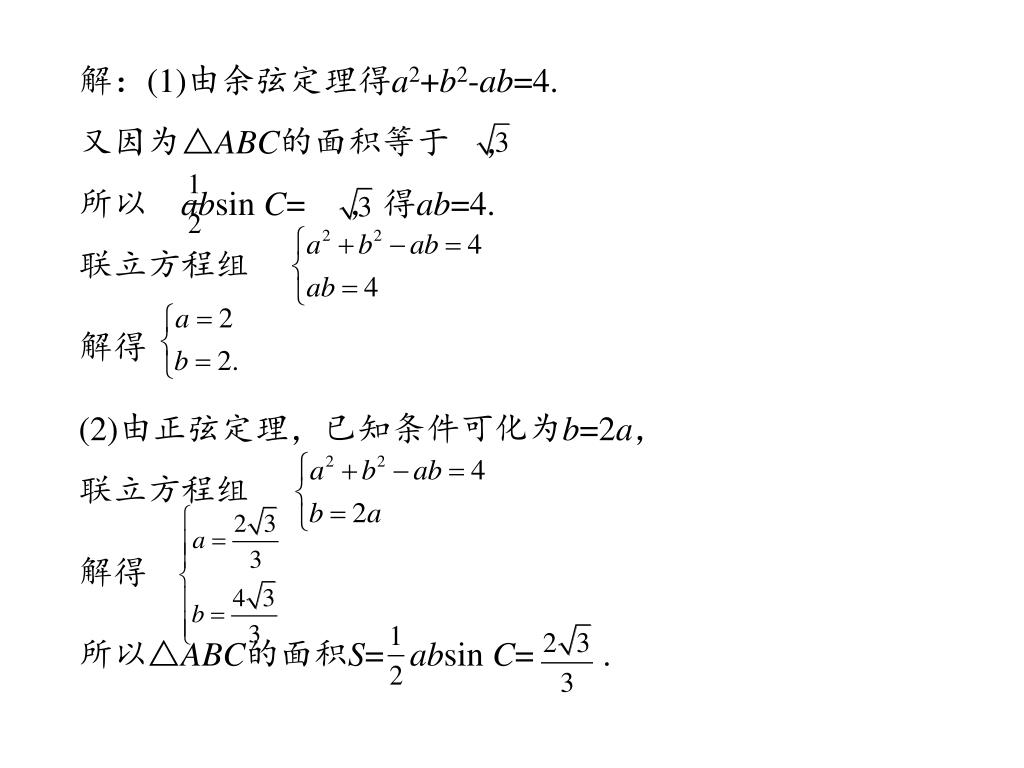 解：(1)由余弦定理得a²+b²-ab=4.
又因为△ABC的面积等于 √3,
所以 1/2 absin C= √3, 得ab=4.
联立方程组 { a²+b²−ab=4
ab=4
解得 { a=2
b=2.
(2)由正弦定理，已知条件可化为b=2a，
联立方程组 { a²+b²−ab=4
b=2a
解得 { a=2√3/3
b=4√3/3
所以△ABC的面积S= 1/2 absin C= 2√3/3 .